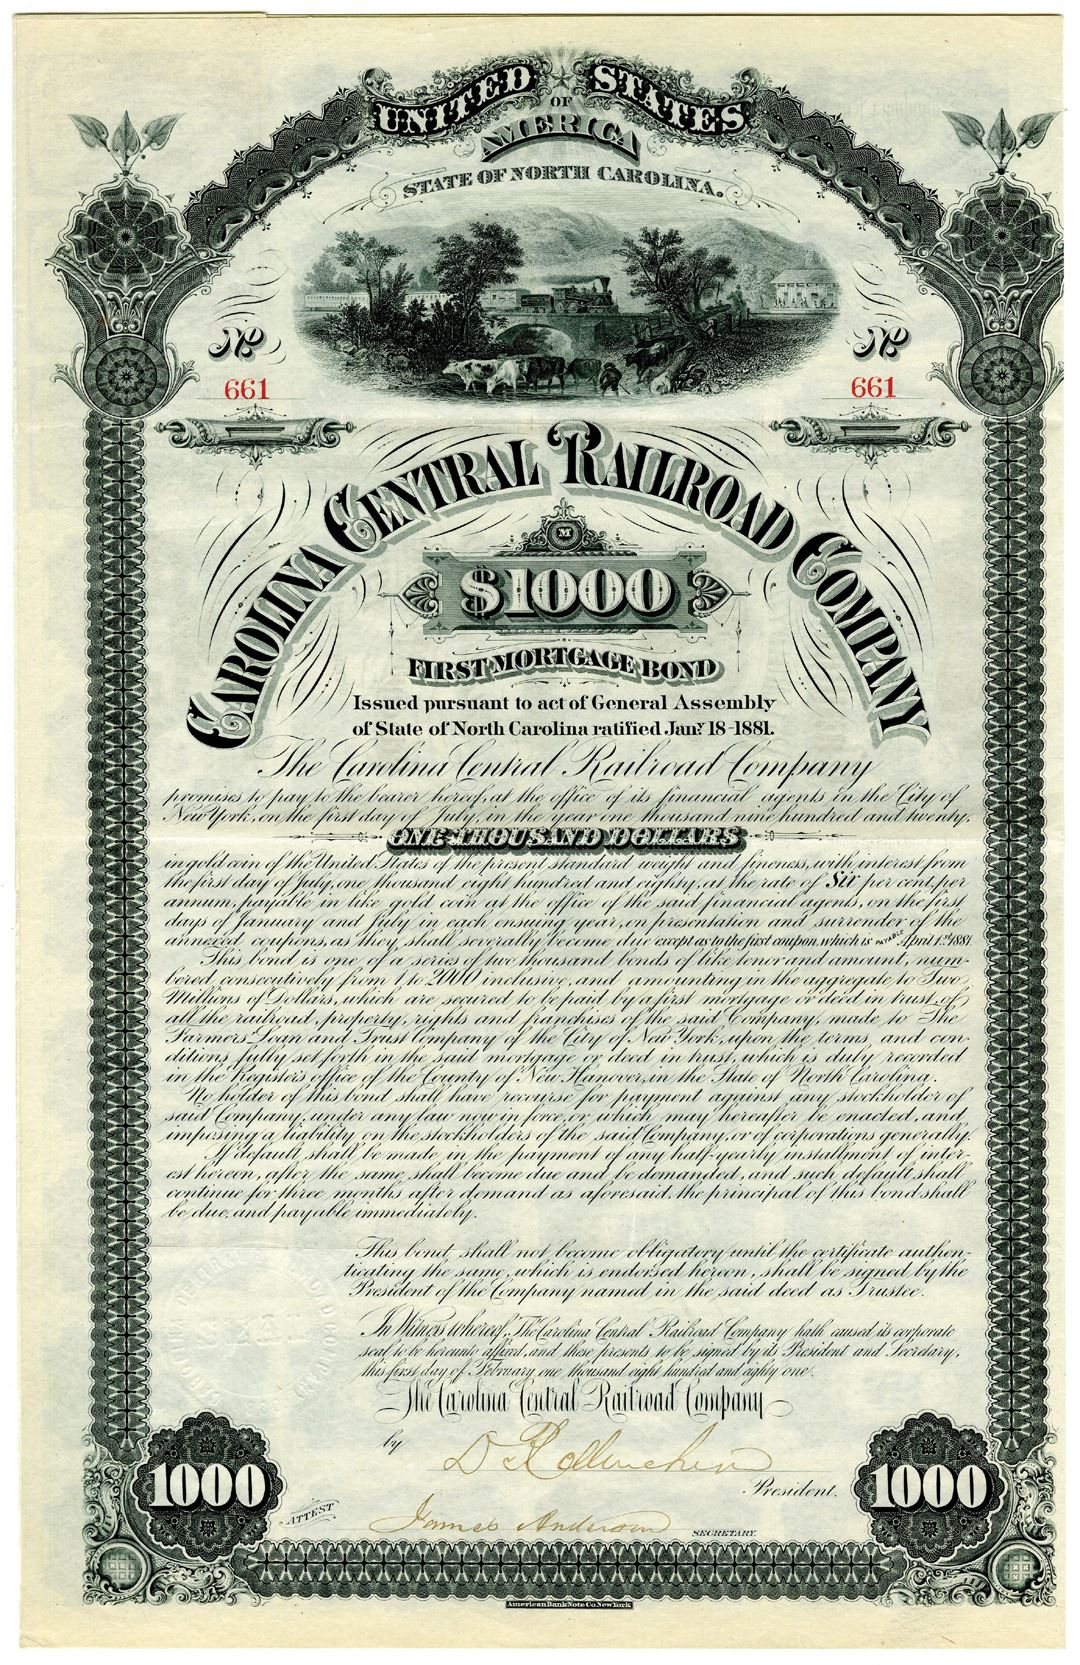 UNITED STATES
OF
AMERICA
STATE OF NORTH CAROLINA.
No
661
No
661
CAROLINA CENTRAL RAILROAD COMPANY
M
$1000
FIRST MORTGAGE BOND
Issued pursuant to act of General Assembly
of State of North Carolina ratified Jany. 18-1881.
The Carolina Central Railroad Company
promises to pay to the bearer hereof, at the office of its financial agents in the City of
New York, on the first day of July, in the year one thousand nine hundred and twenty,
ONE THOUSAND DOLLARS
in gold coin of the United States of the present standard weight and fineness, with interest from
the first day of July, one thousand eight hundred and eighty, at the rate of Six per cent, per
annum, payable in like gold coin at the office of the said financial agents, on the first
days of January and July in each ensuing year, on presentation and surrender of the
annexed coupons, as they shall severally become due except as to the first coupon, which is PAYABLE April 1st 1881
This bond is one of a series of two thousand bonds of like tenor and amount, num-
bered consecutively from 1 to 2000 inclusive, and amounting in the aggregate to Two
Millions of Dollars, which are secured to be paid by a first mortgage or deed in trust, of
all the railroad, property, rights and franchises of the said Company, made to The
Farmers Loan and Trust Company of the City of New York, upon the terms and con-
ditions fully set forth in the said mortgage or deed in trust, which is duly recorded
in the Register's office of the County of New Hanover, in the State of North Carolina.
No holder of this bond shall have recourse for payment against any stockholder of
said Company, under any law now in force, or which may hereafter be enacted, and
imposing a liability on the stockholders of the said Company, or of corporations generally.
If default shall be made in the payment of any half-yearly installment of inter-
est hereon, after the same shall become due and be demanded, and such default shall
continue for three months after demand as aforesaid, the principal of this bond shall
be due, and payable immediately.
This bond shall not become obligatory until the certificate authen-
ticating the same, which is endorsed hereon, shall be signed by the
President of the Company named in the said deed as Trustee.
In Witness whereof, The Carolina Central Railroad Company hath caused its corporate
seal to be hereunto affixed, and these presents to be signed by its President and Secretary,
this first day of February, one thousand eight hundred and eighty one.
The Carolina Central Railroad Company
by
President.
1000
1000
ATTEST
James Anderson
SECRETARY.
American Bank Note Co. New York